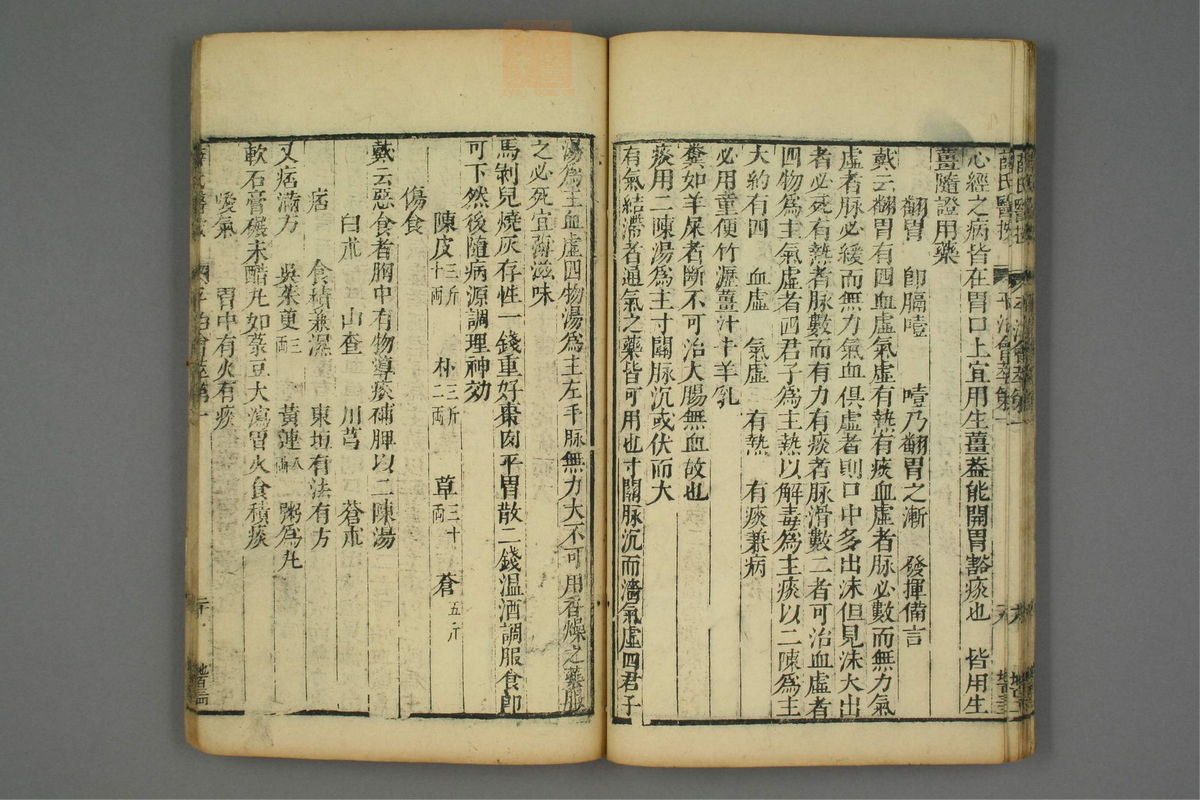 心經之病皆在胃口上宜用生薑葢能開胃豁痰也 皆用生
薑隨證用藥
翻胃 卽膈噎 噎乃翻胃之漸 發揮備言
戴云翻胃有四血虛氣虛有熱有痰血虛者脉必數而無力氣
虛者脉必緩而無力氣血俱虛者則口中多出沫但見沫大出
者必死有熱者脉數而有力有痰者脉滑數二者可治血虛者
四物爲主氣虛者四君子爲主熱以解毒爲主痰以二陳爲主
大約有四 血虛 氣虛 有熱 有痰兼病
必用童便竹瀝薑汁牛羊乳
糞如羊屎者斷不可治大腸無血故也
痰用二陳湯爲主寸關脉沉或伏而大
有氣結滯者通氣之藥皆可用也寸關脉沉而濇氣虛四君子
湯爲主血虛四物湯爲主左手脉無力大不可用香燥之藥服
之必死宜薄滋味
馬剝兒燒灰存性一錢重好棗肉平胃散二錢温酒調服食卽
可下然後隨病源調理神効
陳皮三斤十兩 朴三斤二兩 草三十兩 蒼五斤
傷食
戴云惡食者胸中有物導痰補脾以二陳湯
白朮 山查 川芎 蒼朮
痞 食積兼濕 東垣有法有方
又痞滿方 吳茱萸三兩 黃蓮八兩 粥爲丸
軟石膏碾末醋丸如菉豆大瀉胃火食積痰
噯氣 胃中有火有痰